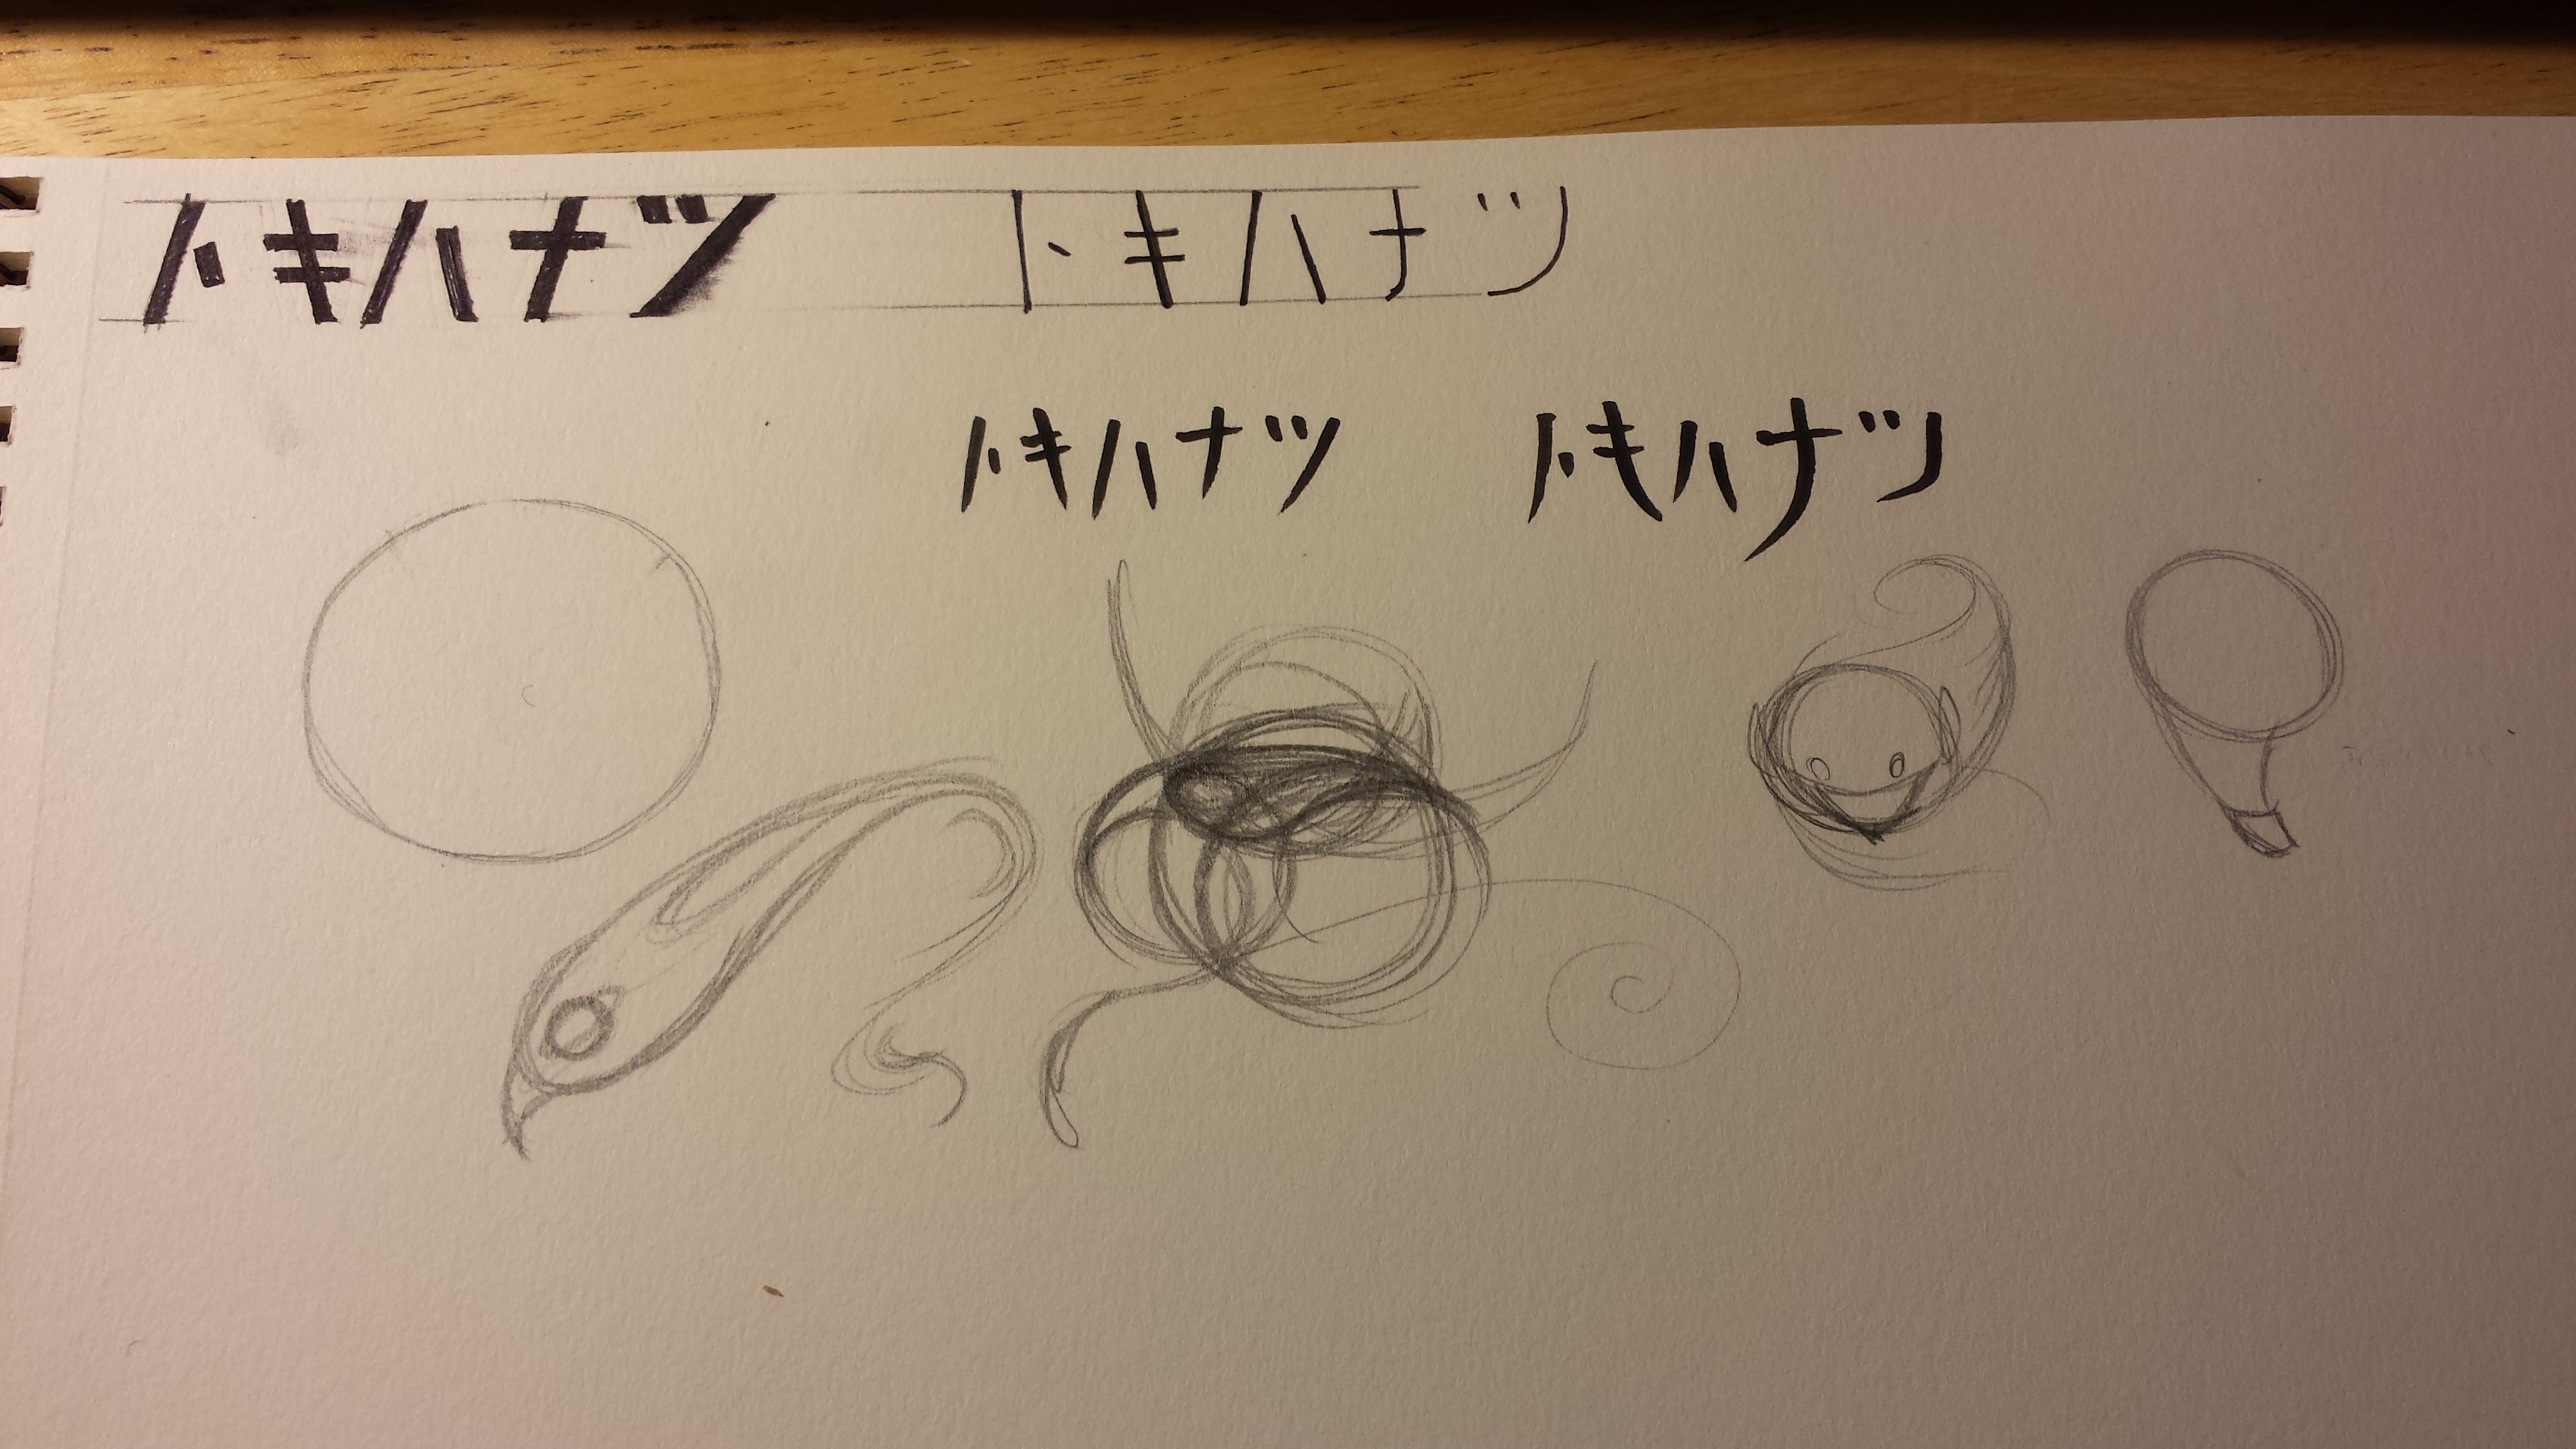 トキハナツ トキハナツ
トキハナツ トキハナツ